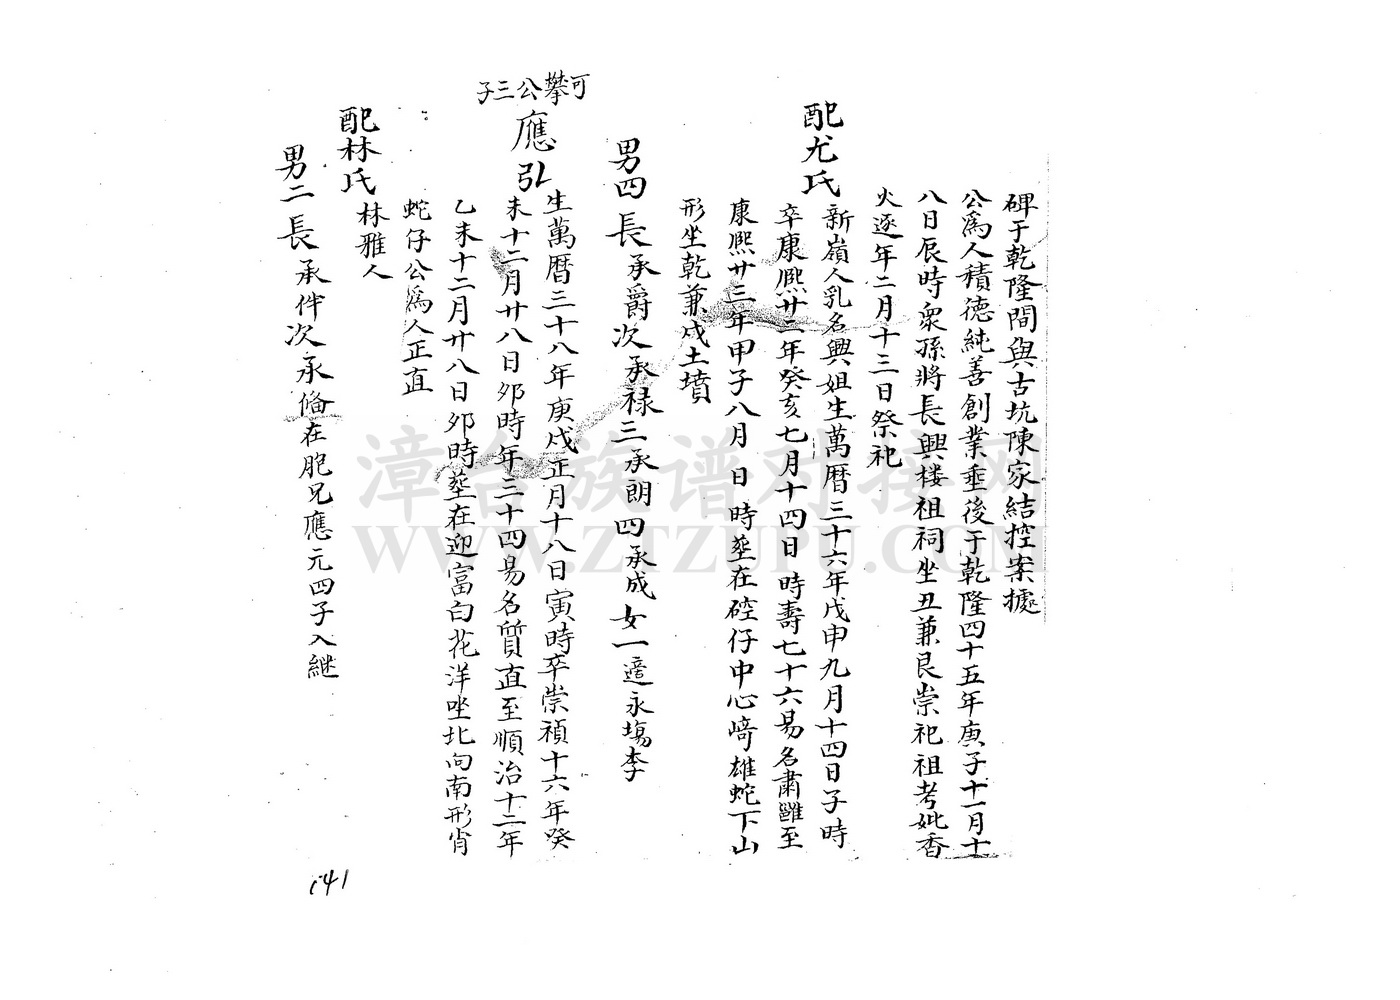 碑于乾隆間與古坑陳家結控案據
公爲人積德純善創業垂後于乾隆四十五年庚子十一月十
八日辰時衆孫將長興楼祖祠坐丑兼艮崇祀祖考妣香
火逐年二月十三日祭祀
配尤氏
新嶺人乳名興姐生萬曆三十六年戊申九月十四日子時
卒康熙廿二年癸亥七月十四日 時壽七十六易名肅雝至
康熙廿三年甲子八月 日 時塟在硿仔中心崎雄蛇下山
形坐乾兼戌土墳
男四長承爵次承禄三承朗四承成女一適永塲李
可攀公三子
應弘
生萬曆三十八年庚戌正月十八日寅時卒崇禎十六年癸
未十二月廿八日夘時年三十四易名質直至順治十二年
乙未十二月廿八日夘時塟在迎富白花洋坐北向南形肖
蛇仔公爲人正直
配林氏
林雅人
男二長承伴次承俻在胞兄應元四子入継
141
漳台族谱对接网
WWW.ZTZUPU.COM